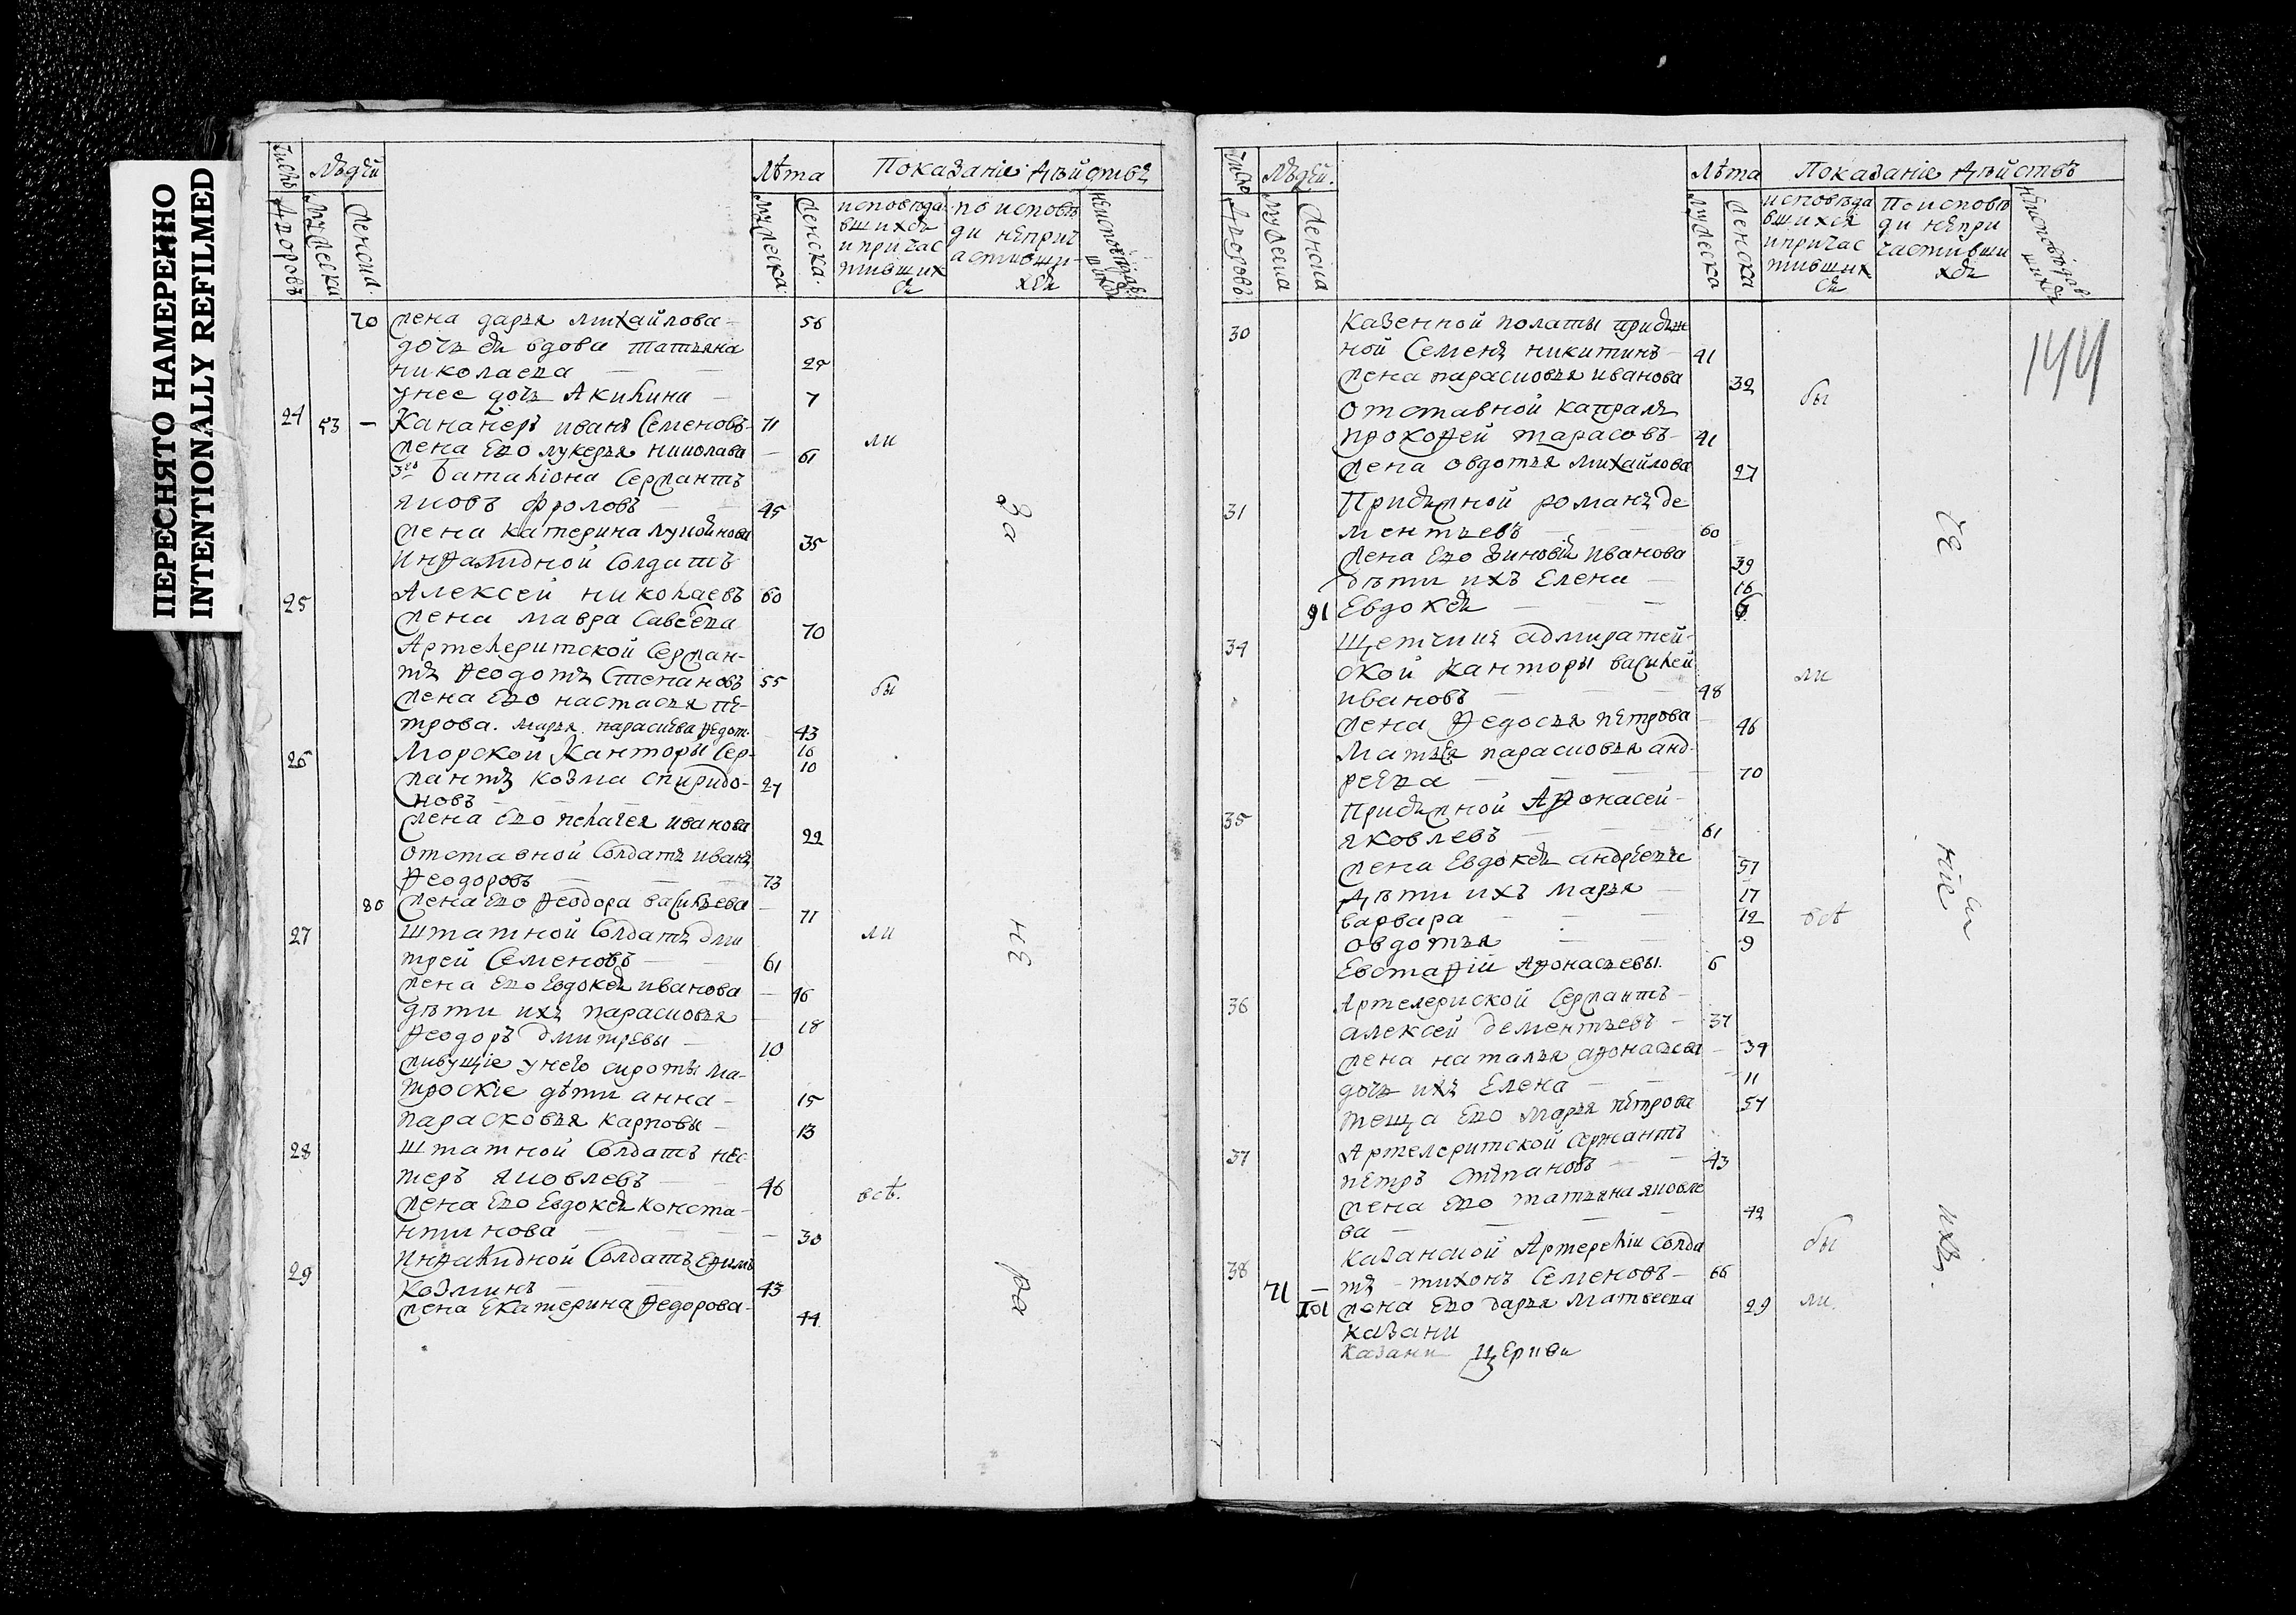 ПЕРЕСНЯТО НАМЕРЕННО
INTENTIONALLY REFILMED
Число дворовъ
Людей
Мужеска
Женска
Лѣта
Мужеска
Женска
Показаніе дѣйствъ
исповѣда
вшихся
и причас
тивших
ся
по исповѣ
ди неприч
астивши
хся
неисповѣдав
шихся
70 жена дарья михайлова 56
дочь ея вдова татьяна
николаева 27
у нее дочь Акилина 7
24 53 — Кананеръ иванъ Семеновъ 71
жена Его лукерья николава 61
3го баталiона Сержантъ
яковъ фроловъ 45
жена катерина лукоянова 35
инвалидной Солдатъ
25 Алексей николаевъ 60
жена мавра Савеева 70
Артелеритской Сержан-
тъ Ѳеодотъ Степановъ 55
жена Его настасья пе-
трова. марья парасковья Ѳедот. 43
16
10
26 Морской Канторы Сер-
жантъ козма спиридо- 27
новъ
жена Его пелагея иванова 22
отставной Солдатъ иванъ
Ѳеодоровъ 73
80 жена Его Ѳеодора васильева 71
27 штатной Солдатъ дми
трей Семеновъ 61
жена Его Евдокея иванова 46
дѣти ихъ парасковья 18
Ѳеодоръ дмитревы 10
живущіе у него сироты ма-
троскіе дѣти анна 15
парасковья карповы 13
28 штатной Солдатъ нес
теръ яковлевъ 46
жена Его Евдокея Конста-
нтинова 30
29 инвалидной Солдатъ Ефимъ
козминъ 43
жена Екатерина Ѳедорова 44
бы
ли
всѣ.
ли
за
не
ра
Число дворовъ
Людей.
Мужеска
Женска
Лѣта
Мужеска
Женска
Показаніе дѣйствъ
исповѣда
вшихся
и причас
тивших
ся
По исповѣ
ди непри
частивши
хся
неисповѣдав
шихся
144
30 Казенной полаты присяж
ной Семенъ никитинъ 41
жена парасковья иванова 32
отставной капралъ
прокоѳей тарасовъ 41
жена овдотья михайлова 27
31 Присяжной романъ де
ментьевъ 60
жена Его Зиновія иванова 39
дѣти ихъ Елена 16
91 Евдокея 6
34 Щетчикъ адмиралтей-
ской канторы василей
ивановъ 48
жена Ѳедосья петрова 46
Матья парасковья анд-
реева 70
35 Присяжной Аѳонасей
яковлевъ 61
жена Евдокея андреева 57
дѣти ихъ марья 17
варвара 12
овдотья 9
Евстафій аѳонасьевы. 6
36 Артелериской Сержантъ
алексей дементьевъ 37
жена наталья аѳонасьева 34
дочь ихъ Елена 11
теща Его марья петрова 57
37 Артелеритской Сержантъ
петръ степановъ 43
жена Его татьяна яковле
ва 42
38 Казанской Артерелiи Солда
71 — тъ тихонъ Семеновъ 66
101 жена Его дарья матвеева 29
казани
казани церкви
бы
ли
всѣ
бы
ли.
се
ніе
ихъ.